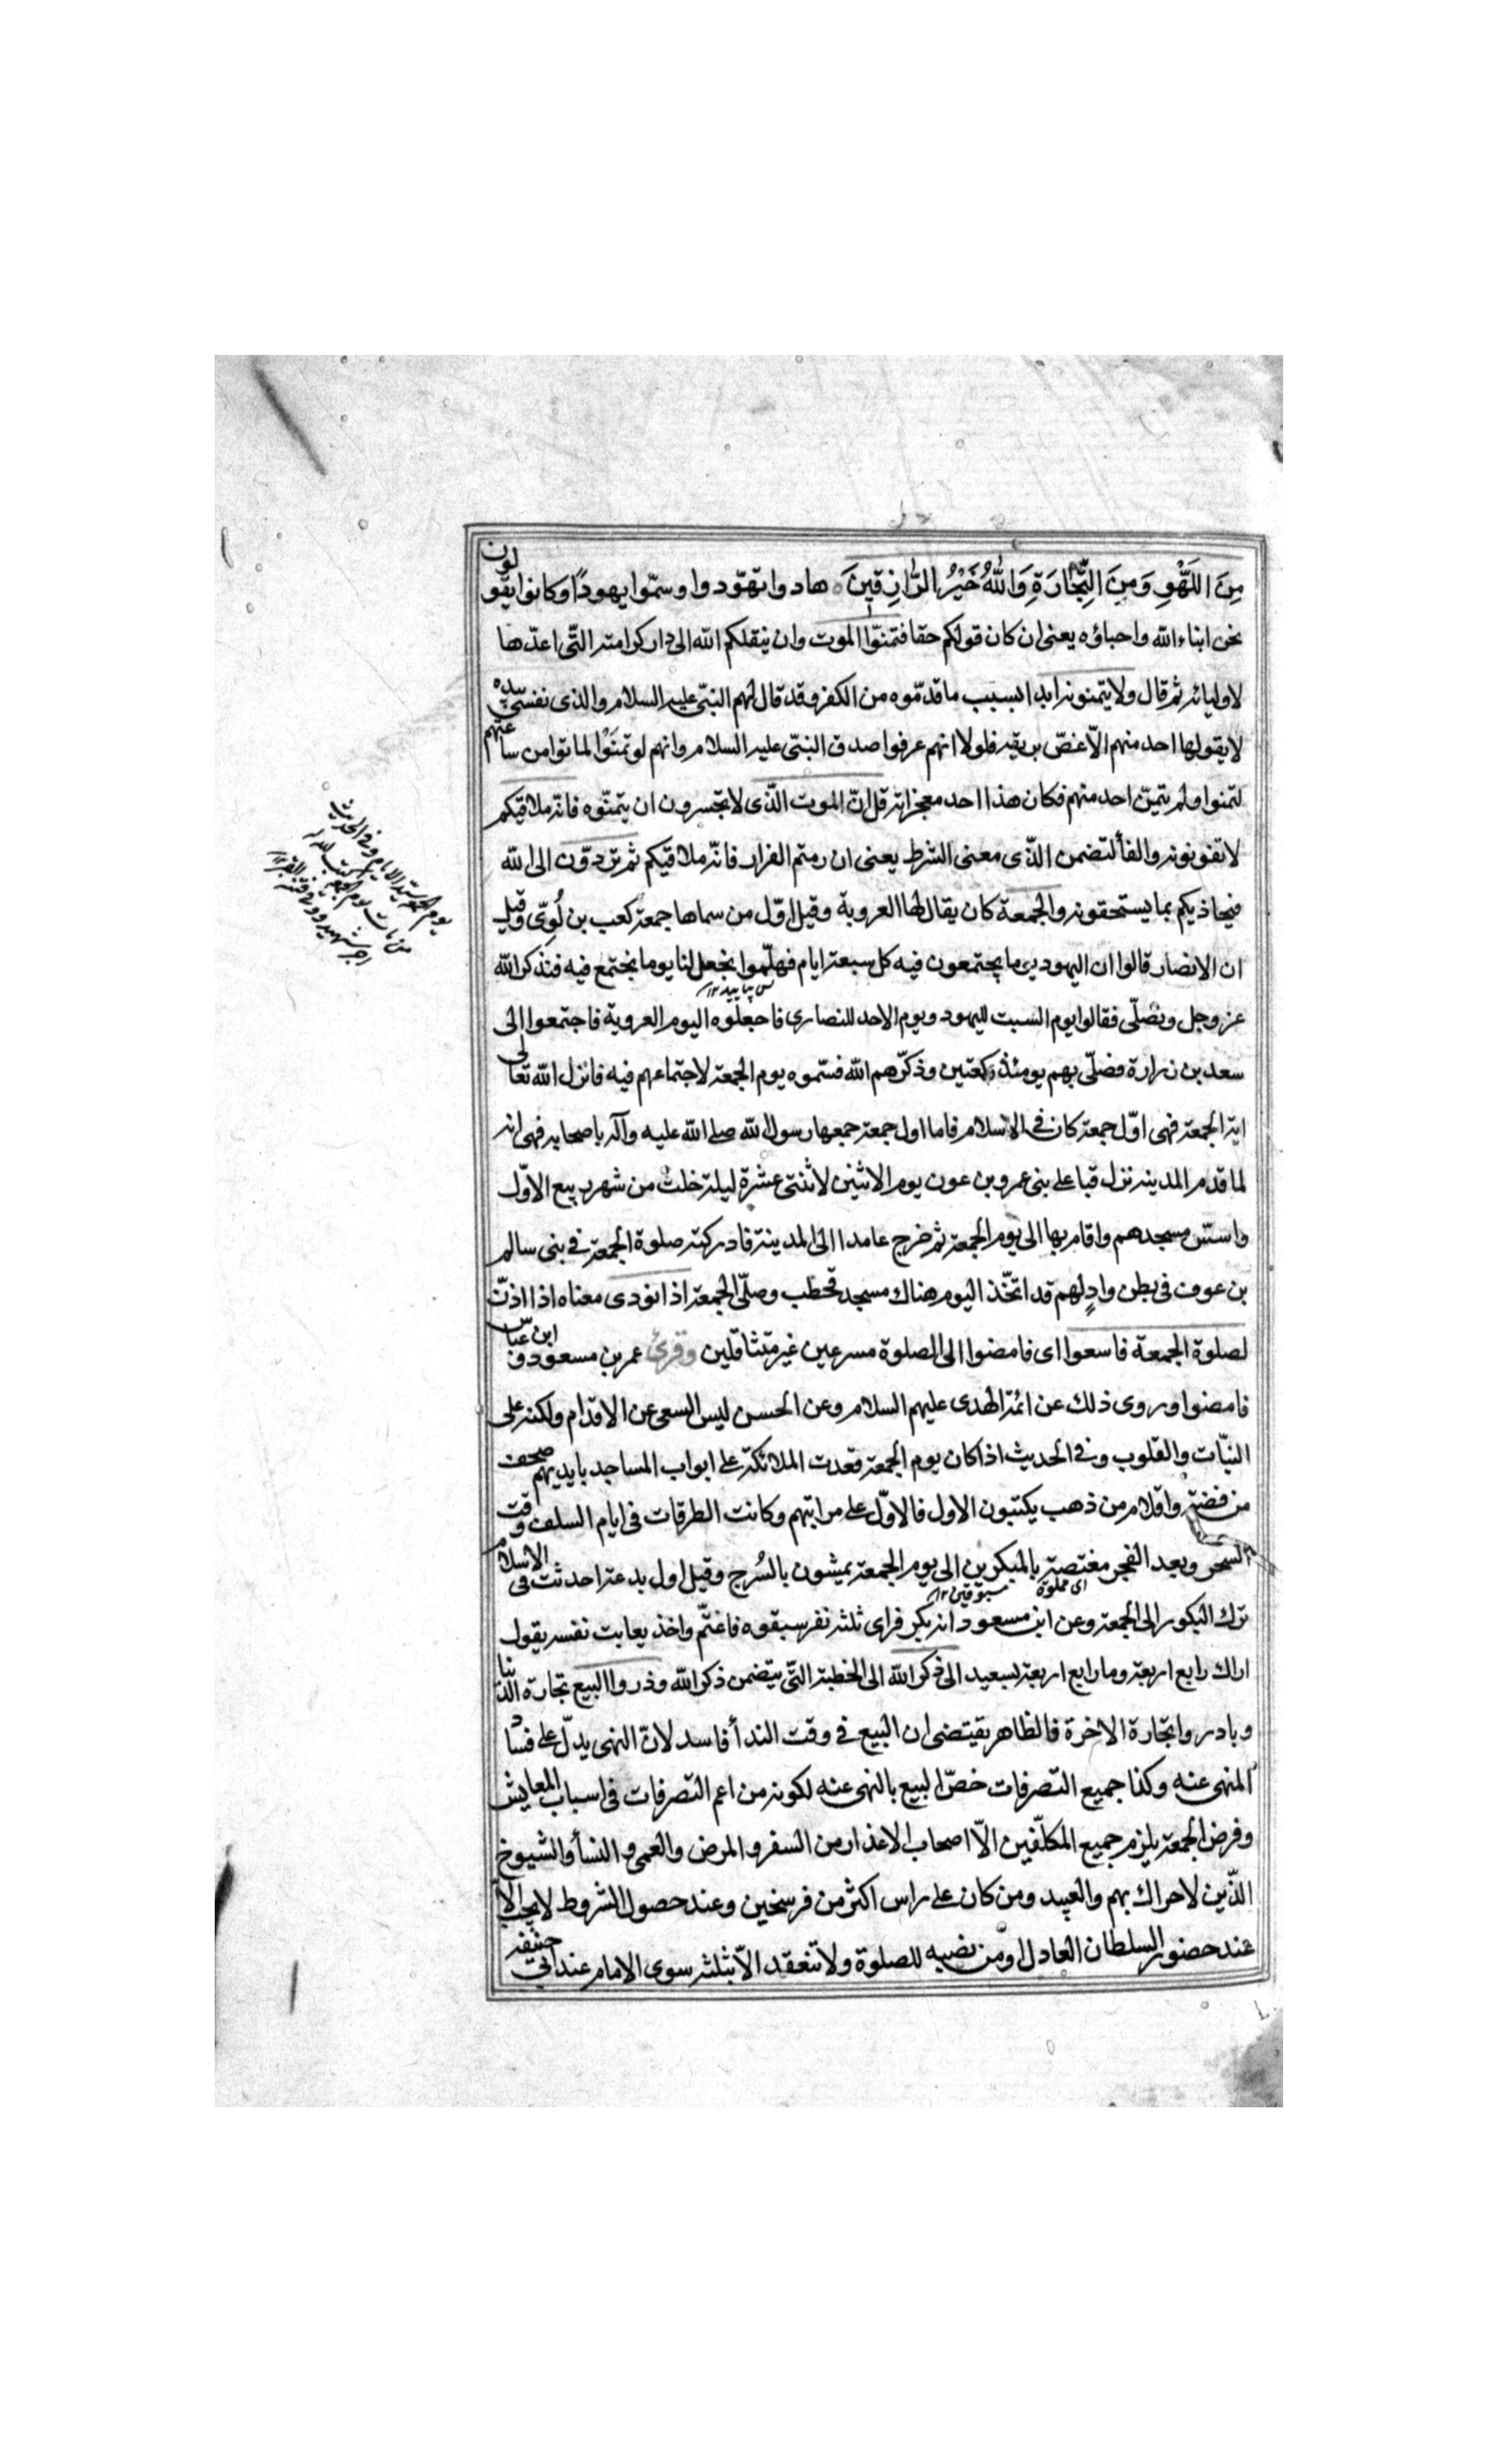 مِنَ اللَّهْوِ وَمِنَ التِّجَارَةِ وَاللهُ خَيْرُ الرَّازِقِينَ هادوا تهوّدوا وسمّوا يهودًا وكانوا يقولون
نحن ابناء الله واحباؤه يعنى ان كان قولكم حقا فتمنوّا الموت وان ينقلكم الله الى دار كرامته التّى اعدّها
لاوليائه ثم قال ولا يتمنونه ابدا بسبب ما قدّموه من الكفر وقد قال لهم النبىّ عليه السلام والذى نفسى بيده
لا يقولها احد منهم الاّ غصّ بريقه فلولا انهم عرفوا صدق النبىّ عليه السلام وانهم لو تمنَوْا لماتوا من ساعتهم
لتمنوا ولم يتمنّ احد منهم فكان هذا احد معجزاته قل انّ الموت الّذى لا تجسرون ان يتمنّوه فانه ملاقيكم
لا تفوتونه والفأ لتضمن الذّى معنى الشرط يعنى ان رمتم الفرار فانّه ملاقيكم ثم تردّون الى الله
فيجاذيكم بما يستحقونه والجمعة كان يقال لها العروبة وقيل اوّل من سماها جمعة كعب بن لُوىّ وقيل
ان الانصار قالوا ان اليهود يوما يجتمعون فيه كل سبعة ايام فهلّموا نجعل لنا يوما نجتمع فيه فنذكر الله
عز وجل ونصلّى فقالوا يوم السبت لليهود ويوم الاحد للنصارى فاجعلوه اليوم العروبة فاجتمعوا الى
سعد بن زرارة فصلّى بهم يومئذ ركعتين وذكّرهم الله فسّموه يوم الجمعة لاجتماعهم فيه فانزل الله تعالى
اية الجمعة فهى اوّل جمعة كان فى الاسلام فاما اول جمعة جمعها رسول الله صلى الله عليه وآله باصحابه فهى انه
لما قدم المدينة نزل قبا على بنى عمرو بن عون يوم الاثنين لاثنتى عشرة ليلة خلت من شهر ربيع الاوّل
واسّس مسجدهم واقام بها الى يوم الجمعة ثم خرج عامدا الى المدينة فادركته صلوة الجمعة فى بنى سالم
بن عوف فى بطن وادٍ لهم قد اتخّذ اليوم هناك مسجد فخطب وصلّى الجمعة اذا نودى معناه اذا اذّن
لصلوة الجمعة فاسعوا اى فامضوا الى الصلوة مسرعين غير متثاقلين وقرئ عمر بن مسعود و ابن عباس
فامضوا وروى ذلك عن ائمة الهدى عليهم السلام وعن الحسن ليس السعى عن الاقدام ولكنه على
النيّات والقلوب وفى الحديث اذا كان يوم الجمعة قعدت الملائكة على ابواب المساجد بايديهم صحف
من فضة واقلام من ذهب يكتبون الاول فالاوّل على مراتبهم وكانت الطرقات فى ايام السلف وقت
السحر وبعد الفجر مغتصة بالمبكرين الى يوم الجمعة يمشون بالسُرج وقيل اول بدعة احدثت فى الاسلام
ترك البكور الى الجمعة وعن ابن مسعود انه بكر فراى ثلثة نفر سبقوه فاغتّم واخذ يعاتب نفسه يقول
اراك رابع اربعة وما رابع اربعة بسعيد الى ذكر الله الى الخطبة التّى يتضمن ذكر الله وذروا البيع تجارة الدّنيا
وبادروا تجارة الاخرة فالظاهر يقتضى ان البيع فى وقت الندأ فاسد لانّ النهى يدلّ على فساد
المنهى عنه وكذا جميع التصرفات خصّ البيع بالنهى عنه لكونه من اعم التصرفات فى اسباب المعايش
وفرض الجمعة يلزم جميع المكلّفين الاّ اصحاب الاعذار من السفر والمرض والعمى والنسأ والشيوخ
الذّين لا حراك بهم والعبيد ومن كان على راس اكثر من فرسخين وعند حصول الشروط لا يجب الا
عند حضور السلطان العادل او من نصبه للصلوة ولا تنعقد الاّ بثلثة سوى الامام عند ابى حنيفة
اى مملوة
مسبوقين ١٢
يوم الجمعة سيد الايام وفى الحديث
من مات يوم الجمعة كتب الله له
اجر شهيد ووقى فتنة القبر ١٢